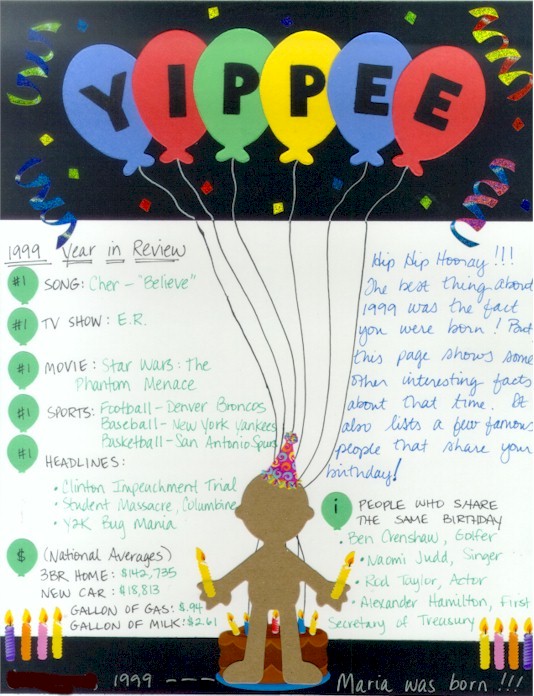 YIPPEE
1999 Year in Review
#1 SONG: Cher - "Believe"
#1 TV SHOW: E.R.
#1 MOVIE: Star Wars: The
Phantom Menace
#1 SPORTS: Football - Denver Broncos
Baseball - New York Yankees
Basketball - San Antonio Spurs
#1 HEADLINES:
• Clinton Impeachment Trial
• Student Massacre, Columbine
• Y2K Bug Mania
$ (National Averages)
3BR HOME: $142,735
NEW CAR: $18,813
GALLON OF GAS: $.94
GALLON OF MILK: $2.61
Hip Hip Hooray!!!
The best thing about
1999 was the fact
you were born! But
this page shows some
other interesting facts
about that time. It
also lists a few famous
people that share your
birthday!
i PEOPLE WHO SHARE
THE SAME BIRTHDAY
• Ben Crenshaw, Golfer
• Naomi Judd, Singer
• Rod Taylor, Actor
• Alexander Hamilton, First
Secretary of Treasury
, 1999 ---- Maria was born!!!